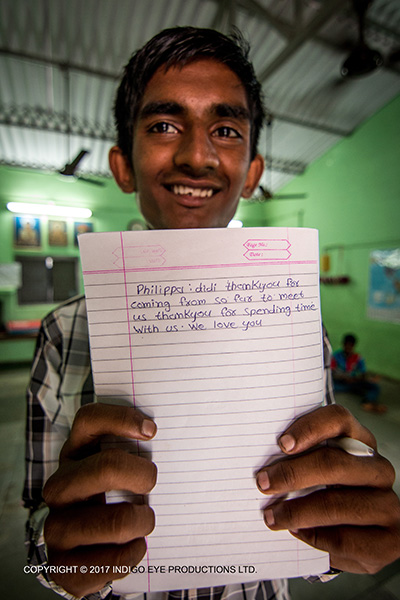 Page No.:
Date:
Philippa: didi thankyou for
coming from so far to meet
us thankyou for spending time
with us. We love you
COPYRIGHT © 2017 INDIGO EYE PRODUCTIONS LTD.